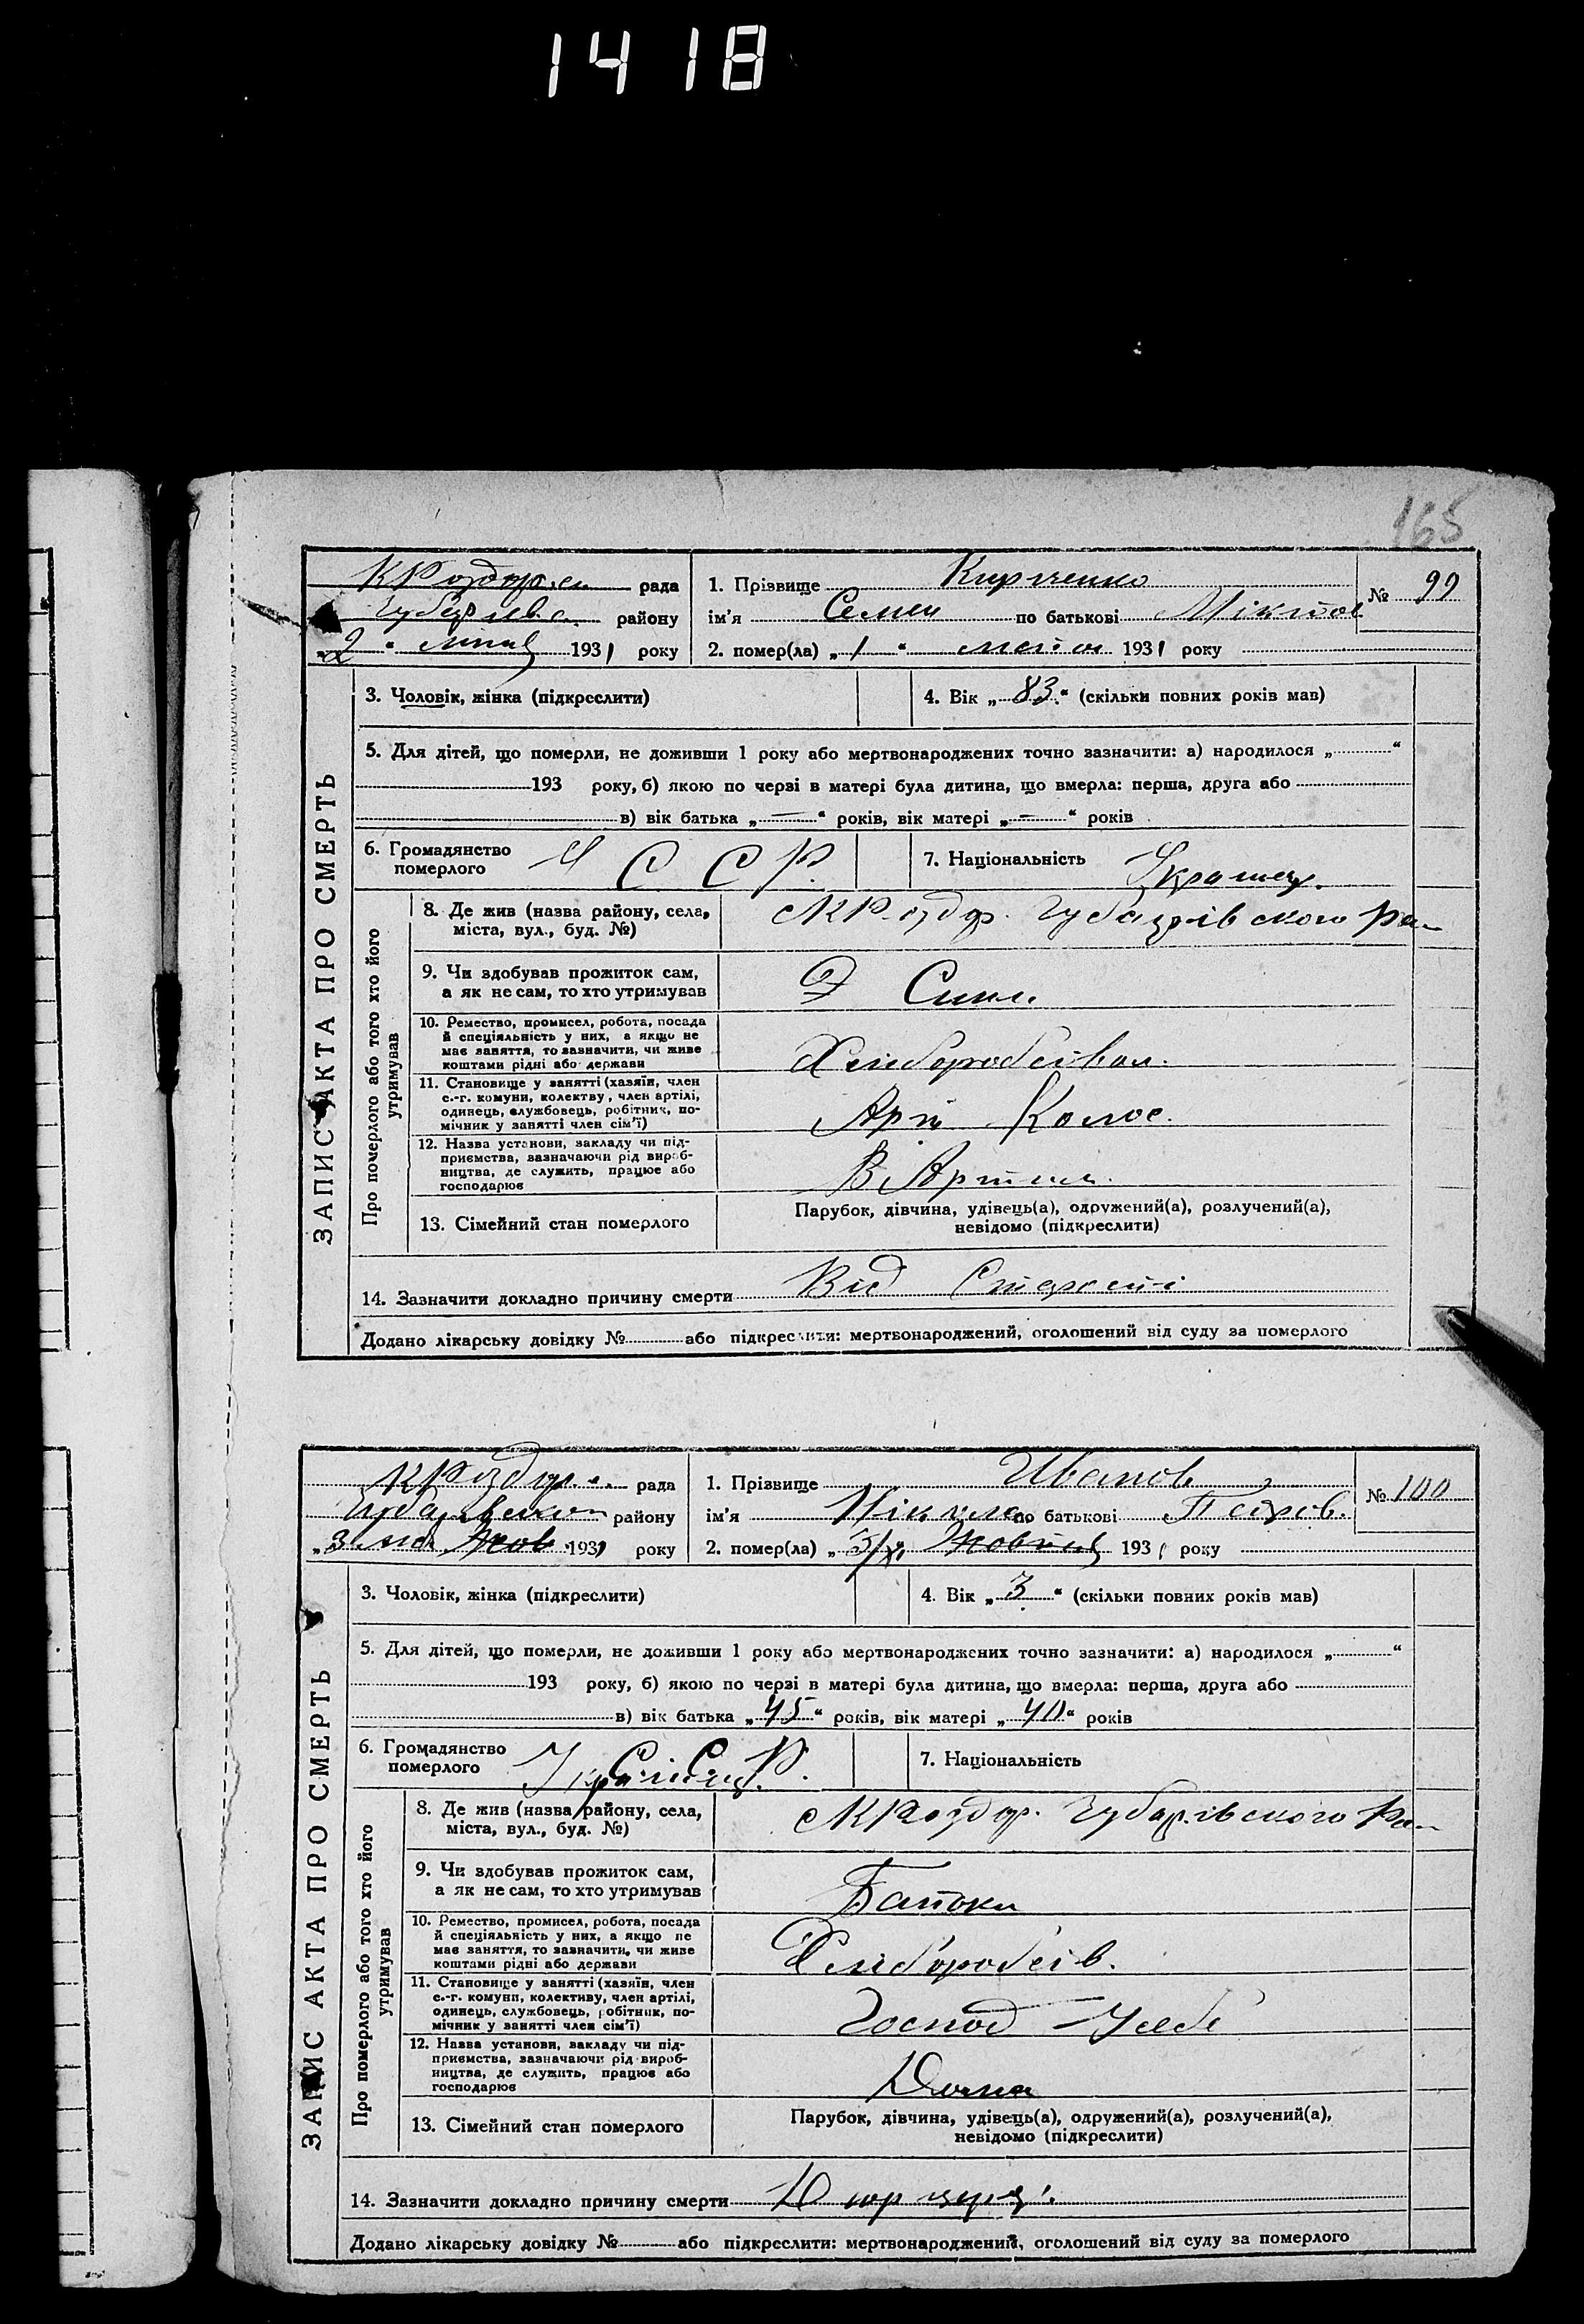 1418
165
рада
району
2 " 1931 року
1. Прізвище Кириченко
ім'я Семен по батькові
2. помер(ла) „ 1 " 1931 року
№ 99
ЗАПИС АКТА ПРО СМЕРТЬ
3. Чоловік, жінка (підкреслити)
4. Вік „ 83 " (скільки повних років мав)
5. Для дітей, що померли, не доживши 1 року або мертвонароджених точно зазначити: а) народилося „ "
193 року, б) якою по черзі в матері була дитина, що вмерла: перша, друга або
в) вік батька „ — " років, вік матері „ — " років
6. Громадянство
померлого
С С Р.
7. Національність
Про померлого або того хто його
утримував
8. Де жив (назва району, села,
міста, вул., буд. №)
9. Чи здобував прожиток сам,
а як не сам, то хто утримував
10. Ремество, промисел, робота, посада
й спеціяльність у них, а якщо не
має заняття, то зазначити, чи живе
коштами рідні або держави
11. Становище у занятті (хазяїн, член
с.-г. комуни, колектву, член артілі,
одинець, службовець, робітник, по-
мічник у занятті член сім'ї)
Арт Колос.
12. Назва установи, закладу чи під-
приємства, зазначаючи рід вироб-
ництва, де служить, працює або
господарює
В Артили.
13. Сімейний стан померлого
Парубок, дівчина, удівець(а), одружений(а), розлучений(а),
невідомо (підкреслити)
14. Зазначити докладно причину смерти Від Старості
Додано лікарську довідку № або підкреслити: мертвонароджений, оголошений від суду за померлого
рада
району
1931 року
1. Прізвище Иванов
ім'я Нікола по батькові Петров.
2. помер(ла) „ Жовтня 1931 року
№ 100
ЗАПИС АКТА ПРО СМЕРТЬ
3. Чоловік, жінка (підкреслити)
4. Вік „ 3 " (скільки повних років мав)
5. Для дітей, що померли, не доживши 1 року або мертвонароджених точно зазначити: а) народилося „ "
193 року, б) якою по черзі в матері була дитина, що вмерла: перша, друга або
в) вік батька „ 45 " років, вік матері „ 40 " років
6. Громадянство
померлого
7. Національність
Про померлого або того хто його
утримував
8. Де жив (назва району, села,
міста, вул., буд. №)
9. Чи здобував прожиток сам,
а як не сам, то хто утримував
Батьки
10. Ремество, промисел, робота, посада
й спеціяльність у них, а якщо не
має заняття, то зазначити, чи живе
коштами рідні або держави
11. Становище у занятті (хазяїн, член
с.-г. комуни, колективу, член артілі,
одинець, службовець, робітник, по-
мічник у занятті член сім'ї)
Господ У себе
12. Назва установи, закладу чи під-
приємства, зазначаючи рід вироб-
ництва, де служить, працює або
господарює
Дома
13. Сімейний стан померлого
Парубок, дівчина, удівець(а), одружений(а), розлучений(а),
невідомо (підкреслити)
14. Зазначити докладно причину смерти
Додано лікарську довідку № або підкреслити: мертвонароджений, оголошений від суду за померлого